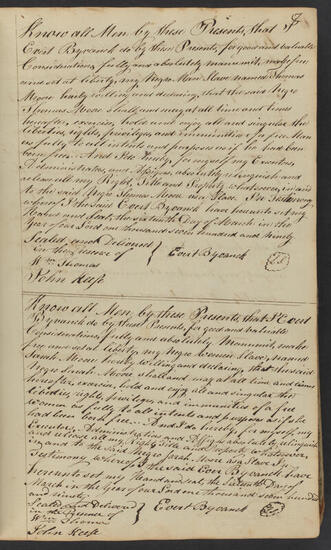 Know all Men by these Presents, that I
Evert Byvanck do by these Presents, for good and valuable
Considerations, fully and absolutely manumit, make free
and set at liberty, my Negro Man Slave, named Thomas
Moore hereby willing and declaring, that the said Negro
Thomas Moore shall and may at all time and times
hereafter, exercise, hold and enjoy all and singular the
liberties, rights, privileges, and immunities of a free Man
as fully to all intents and purposes as if he had been
born free. And I do hereby, for myself my Executors
Administrators, and Assigns, absolutely relinquish and
release all my Right, Title and Property whatsoever, in and
to the said Negro Thomas Moore as a Slave. In Testimony
whereof I the said Evert Byvanck have hereunto set my
Hand and Seal, the sixteenth Day of March in the
Year of our Lord one thousand seven hundred and ninety
Sealed and Delivered
in the Presence of
Evert Byvanck
Wm Thomas
John Keese
Know all Men by these Presents, that I Evert
Byvanck do by these Presents, for good and valuable
Considerations, fully and absolutely Manumit, make
free and set at liberty, my Negro Woman Slave, named
Sarah Moore hereby willing and declaring, that the said
Negro Sarah Moore shall and may at all time and times
hereafter, exercise, hold and enjoy all and singular the
liberties, rights, privileges and immunities of a free
Woman as fully to all intents and purposes as if she
had been born free. And I do hereby, for myself, my
Executors, Administrators and Assigns absolutely relinquish
and release all my Right, Title and property whatsoever,
in and to the said Negro Sarah Moore as a Slave. In
Testimony whereof I the said Evert Byvanck have
hereunto set my Hand and Seal, the sixteenth Day of
March in the Year of our Lord one thousand seven hundred
and ninety
Sealed and Delivered
in the Presence of
Evert Byvanck
Wm Thomas
John Keese